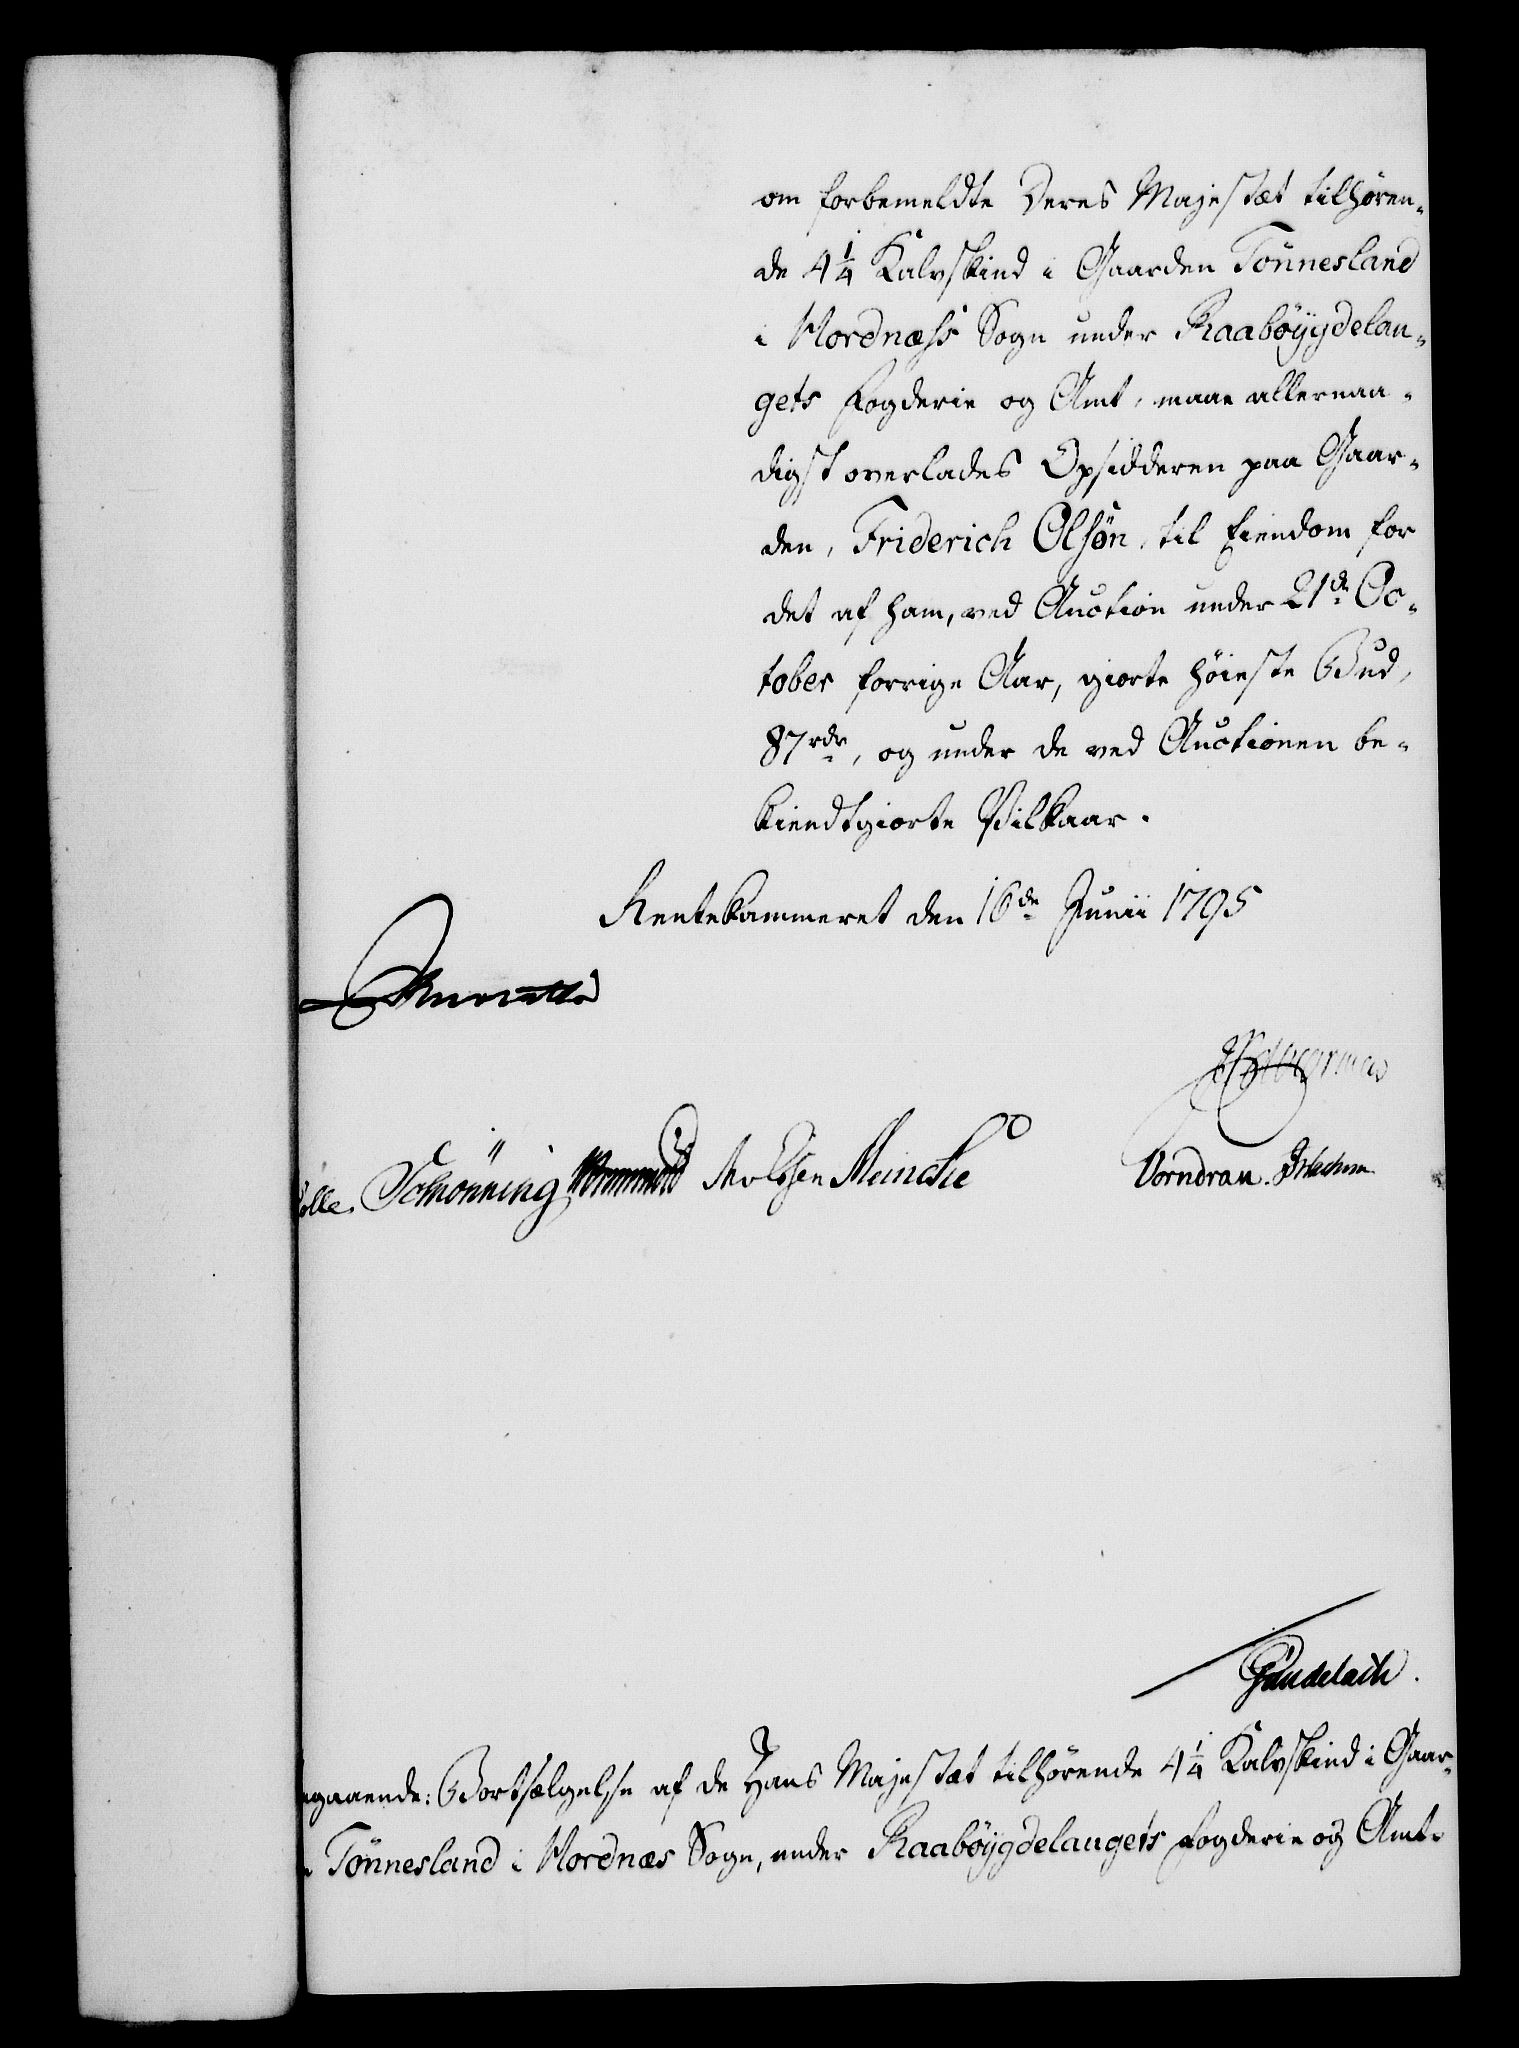 om forbemeldte Deres Majestæt tilhøren-
de 4 1/4 Kalvskind i Gaarden Tönnesland
i Hordnæss Sogn under Raabøygdelau-
gets Fogderie og Amt, maae allernaa-
digst overlades Opsidderen paa Gaar-
den, Friderich Olsøn, til Eiendom for
det af ham, ved Auction under 21de Oc-
tober forrige Aar, giorte høieste Bud,
87 rdr, og under de ved Auctionen be-
kiendtgiorte Vilkaar.
Rentekammeret den 16de Junii 1795
Schönning Meincke
Vorndran.
Gündelach.
gaaende: Bortsælgelse af de Hans Majestæt tilhørende 4 1/4 Kalvskind i Gaar-
Tönnesland i Hordnæs Sogn, under Raabøygdelaugets Fogderie og Amt.